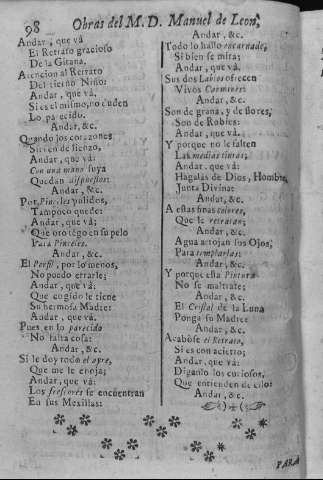 98 Obras del M. D. Manuel de Leon,
Andar, que vá
El Retrato gracioso
De la Gitana.
Atencion al Retrato
Del tierno Niño:
Andar, que vá:
Si es el mismo, no duden
Lo parecido.
Andar, &c.
Quando los corazones
Sirven de lienzo,
Andar, que vá:
Con una mano suya
Quedan dispuestos:
Andar, &c.
Por Pinceles pulidos,
Tampoco quede:
Andar, que vá:
Que oro tégo en su pelo
Para Pinceles.
Andar, &c.
El Perfil, por lo menos,
No puedo errarle;
Andar, que vá:
Que cogido le tiene
Su hermosa Madre:
Andar, que vá.
Pues en lo parecido
No falta cosa:
Andar, &c.
Si le doy todo el ayre,
Que me le enoja;
Andar, que vá:
Los frescores se encuentran
En sus Mexillas:
Andar, &c.
Todo lo hallo encarnado,
Si bien se mira;
Andar, que vá:
Sus dos Labios ofrecen
Vivos Carmines:
Andar, &c.
Son de grana, y de flores,
Son de Rubies:
Andar, que vá.
Y porque no le falten
Las medias tintas;
Andar, que vá:
Hagalas de Dios, Hombre,
Junta Divina:
Andar, &c.
A estas finas colores,
Que le retratan;
Andar, &c.
Agua arrojan sus Ojos,
Para templarlas:
Andar, &c.
Y porque esta Pintura
No se maltrate;
Andar, &c.
El Cristal de la Luna
Ponga su Madre
Andar, &c.
Acabóse el Retrato,
Si es con acierto;
Andar, que vá:
Diganlo los curiosos,
Que entienden de ello:
Andar, &c.
PARA